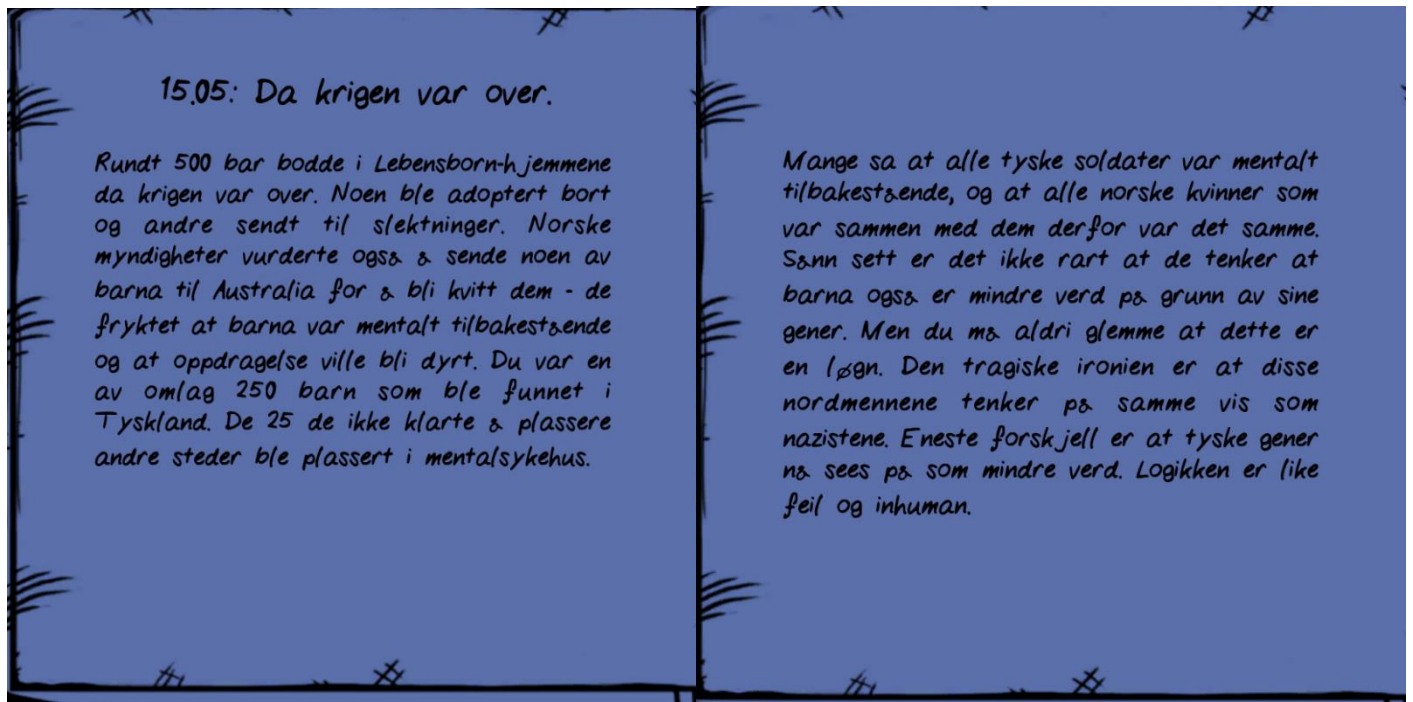 15.05: Da krigen var over.
Rundt 500 bar bodde i Lebensborn-hjemmene
da krigen var over. Noen ble adoptert bort
og andre sendt til slektninger. Norske
myndigheter vurderte også å sende noen av
barna til Australia for å bli kvitt dem - de
fryktet at barna var mentalt tilbakestående
og at oppdragelse ville bli dyrt. Du var en
av omlag 250 barn som ble funnet i
Tyskland. De 25 de ikke klarte å plassere
andre steder ble plassert i mentalsykehus.
Mange sa at alle tyske soldater var mentalt
tilbakestående, og at alle norske kvinner som
var sammen med dem derfor var det samme.
Sånn sett er det ikke rart at de tenker at
barna også er mindre verd på grunn av sine
gener. Men du må aldri glemme at dette er
en løgn. Den tragiske ironien er at disse
nordmennene tenker på samme vis som
nazistene. Eneste forskjell er at tyske gener
nå sees på som mindre verd. Logikken er like
feil og inhuman.